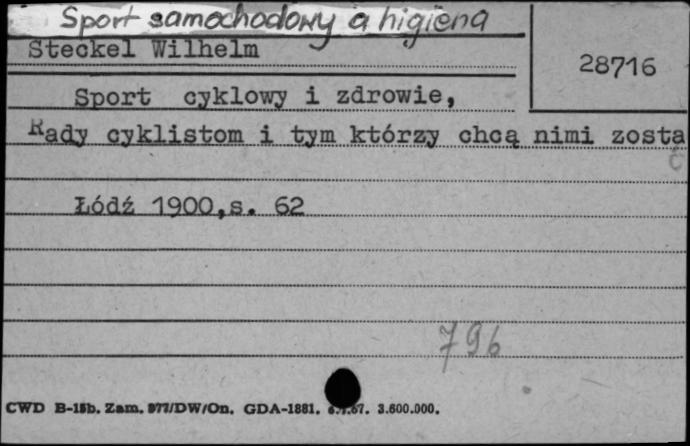 Sport samochodowy a higiena
Steckel Wilhelm
28716
Sport cyklowy i zdrowie,
Rady cyklistom i tym którzy chcą nimi zosta
ć
Łódź 1900,s. 62
796
CWD B-15b. Zam. 977/DW/On. GDA-1881. 3.600.000.